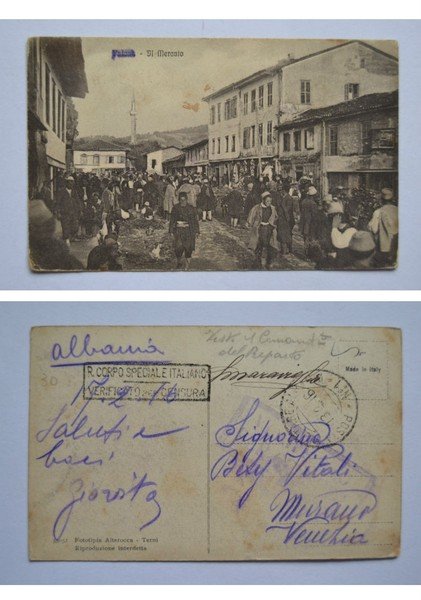 Valona - Il Mercato
Albania
R. CORPO SPECIALE ITALIANO
VERIFICATO PER CENSURA
7.2.16
Saluti e
baci
Visto Il Comandte
del Reparto
Made in Italy
Signorina
Bety Vitali
Murano
Venezia
Fototipia Alterocca - Terni
Riproduzione interdetta